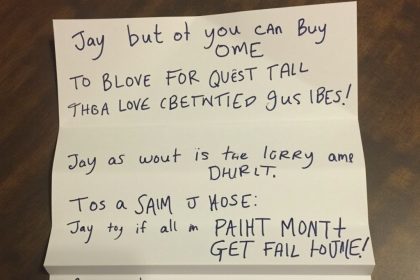 Jay but of you can Buy
OME
TO BLOVE FOR QUËST TALL
THGA LOVE CBETWTIED gus IBES!
Jay as wout is the lorry ame
DHIRLT.
Tos a SAIM J HOSE:
Jay toy if all in PAIHT MONTH
GET FAIL toUME!